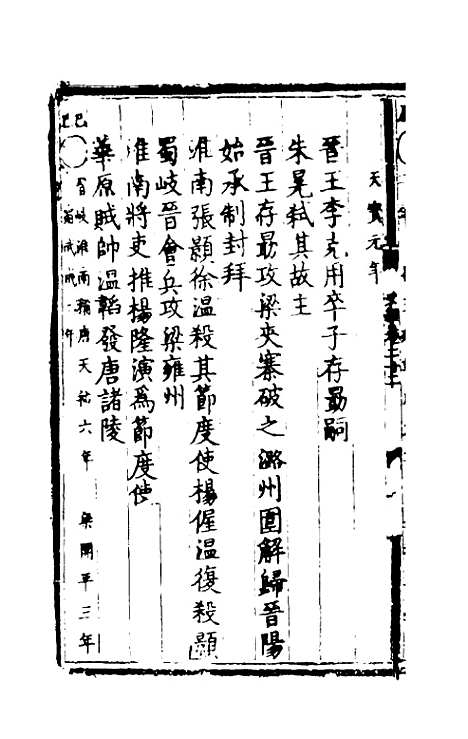 天寶元年
晉王李克用卒子存勗嗣
朱晃弑其故主
晉王存勗攻梁夾寨破之潞州圍解歸晉陽
始承制封拜
淮南張顥徐溫殺其節度使楊偓溫復殺顥
蜀岐晉會兵攻梁雍州
淮南將吏推楊隆演爲節度使
華原賊帥溫韜發唐諸陵
巳 晉岐淮南稱唐天祐六年 梁開平三年
蜀武成二年